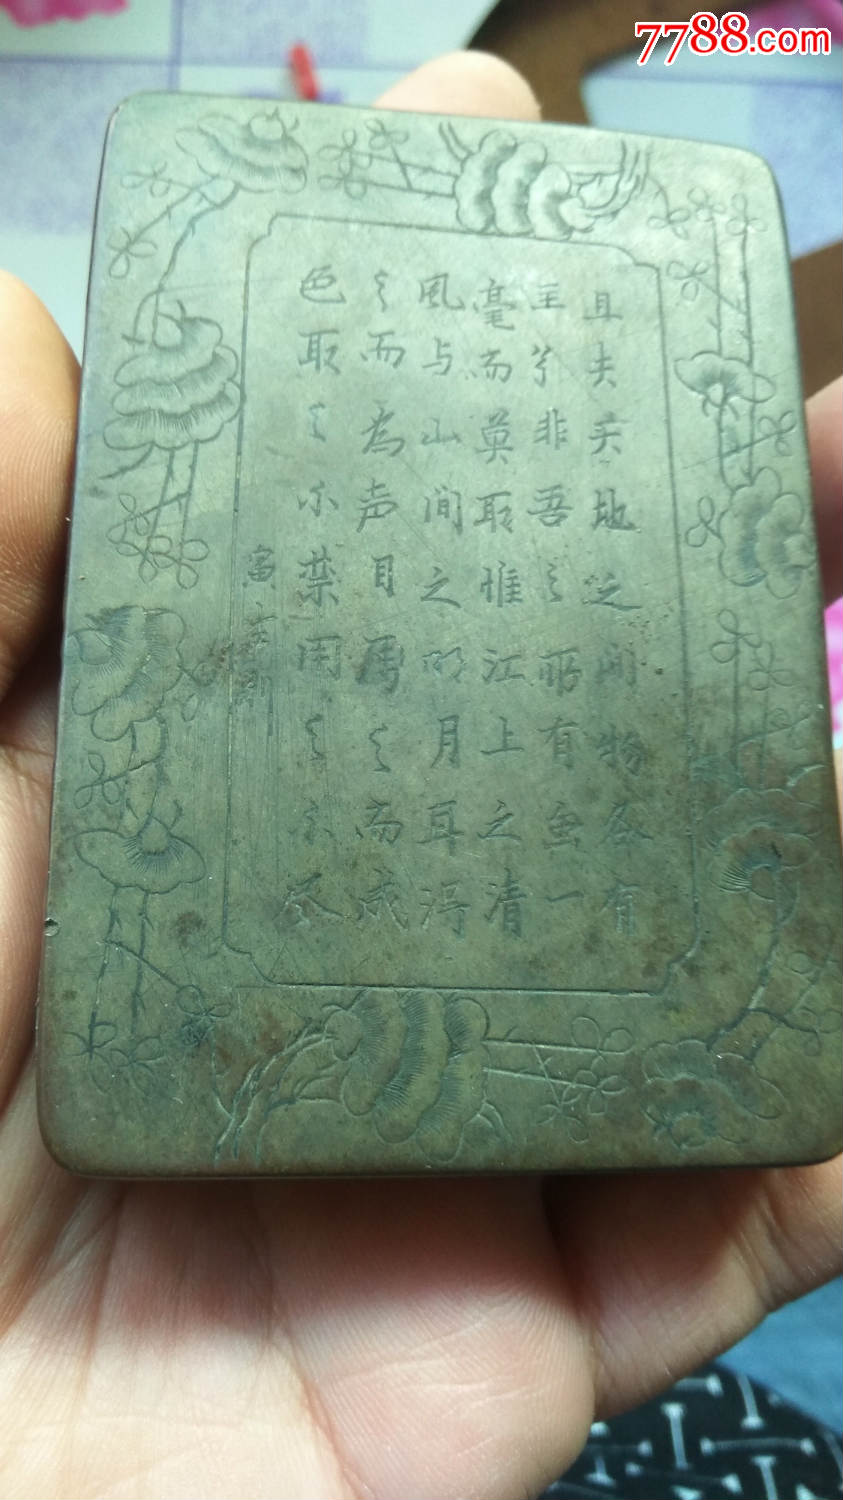 7788.com
且夫天地之间物各有
主苟非吾之所有虽一
毫而莫取惟江上之清
風与山间之明月耳得
之而為声目之而成
色取之不禁用之不尽
寅生刻